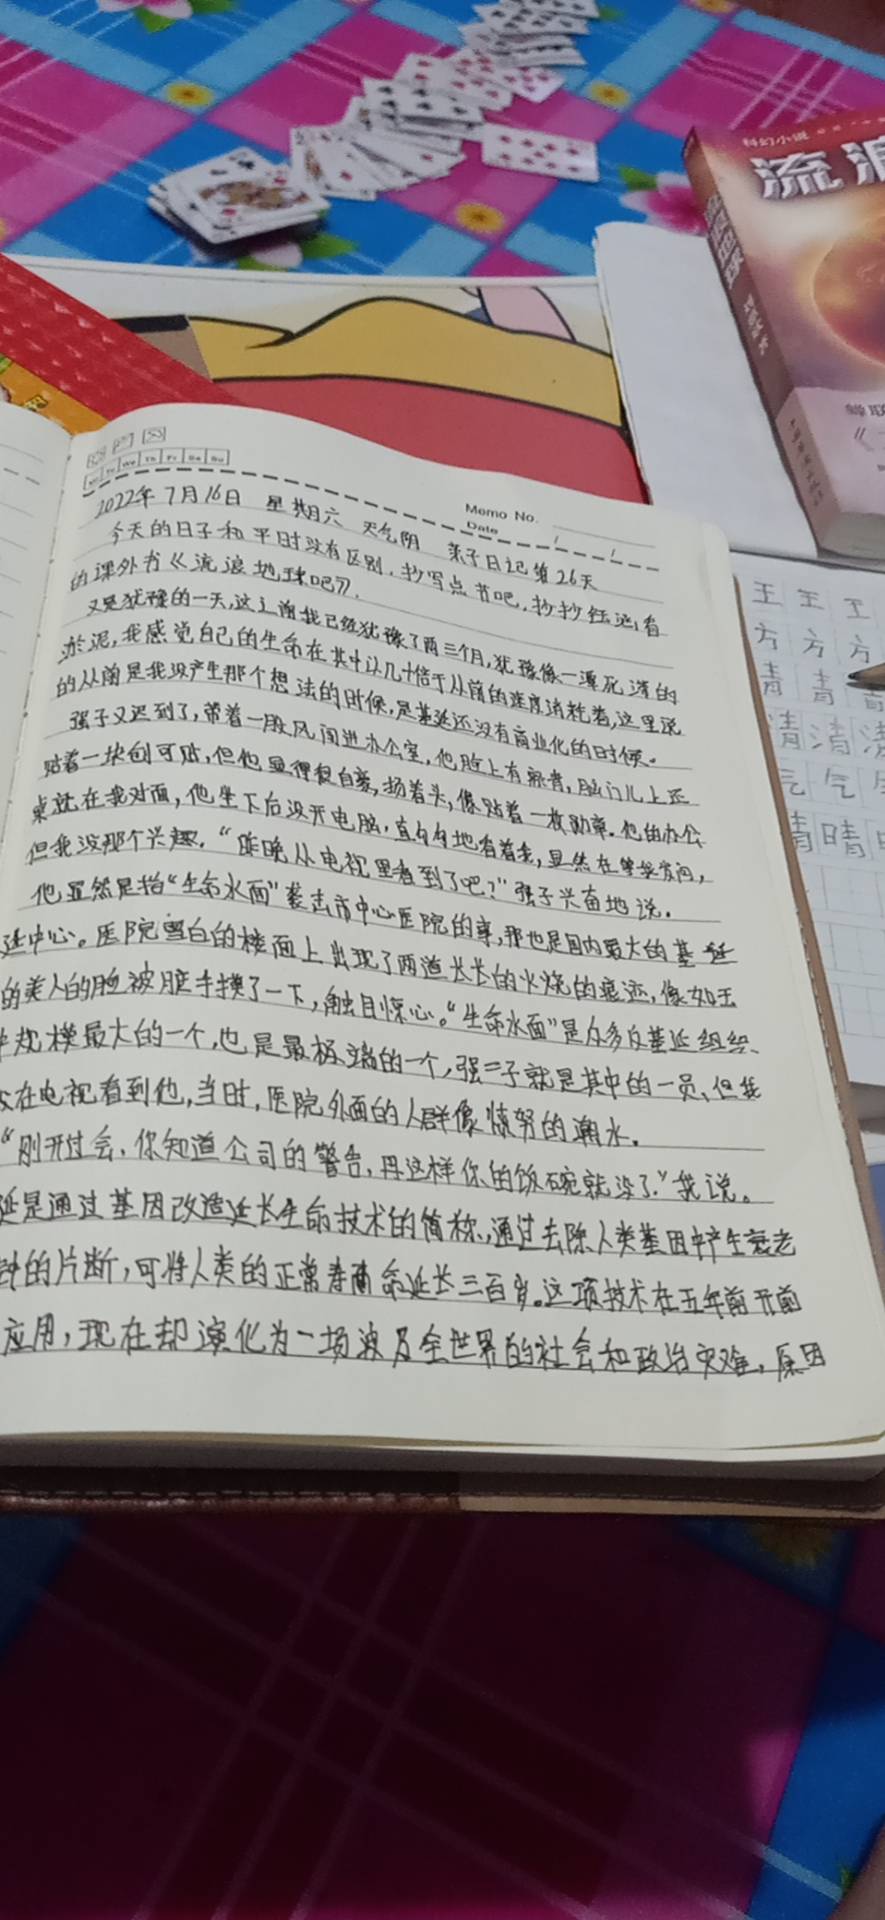 科幻小说
流浪
Mo Tu We Th Fr Sa Su
Memo No.
Date / /
2022年7月16日 星期六 天气阴 亲子日记第26天
今天的日子和平时没有区别,抄写点书吧,抄抄
的课外书《流浪地球吧》.
又是犹豫的一天,这之前我已经犹豫了两三个月,犹豫像一潭死滞的
淤泥,我感觉自己的生命在其中以几十倍于从前的速度消耗着,这里说
的从前是我没产生那个想法的时候,是基延还没有商业化的时候。
强子又迟到了,带着一股风闯进办公室,他脸上有淤青,脑门儿上还
贴着一块创可贴,但他显得很自豪,扬着头,像贴着一枚勋章。他的办公
桌就在我对面,他坐下后没开电脑,直勾勾地看着我,显然在等我发问,
但我没那个兴趣.“昨晚从电视里看到了吧?”强子兴奋地说。
他显然是指“生命水面”袭击市中心医院的事,那也是国内最大的基延
延中心。医院雪白的楼面上出现了两道长长的火烧的痕迹,像如玉
的美人的脸被脏手摸了一下,触目惊心。“生命水面”是众多反基延组织、
中规模最大的一个,也是最极端的一个,强子就是其中的一员、但我
没在电视看到他,当时,医院外面的人群像愤努的潮水.
“刚开过会,你知道公司的警告,再这样你的饭碗就没了.”我说。
延是通过基因改造延长生命技术的简称,通过去除人类基因中产生衰老
钟的片断,可将人类的正常寿命延长三百岁。这项技术在五年前开前
应用,现在却演化为一场波及全世界的社会和政治灾难,原因
王 王 王
方 方 方
青 青 青
清 清 清
气 气
晴 晴